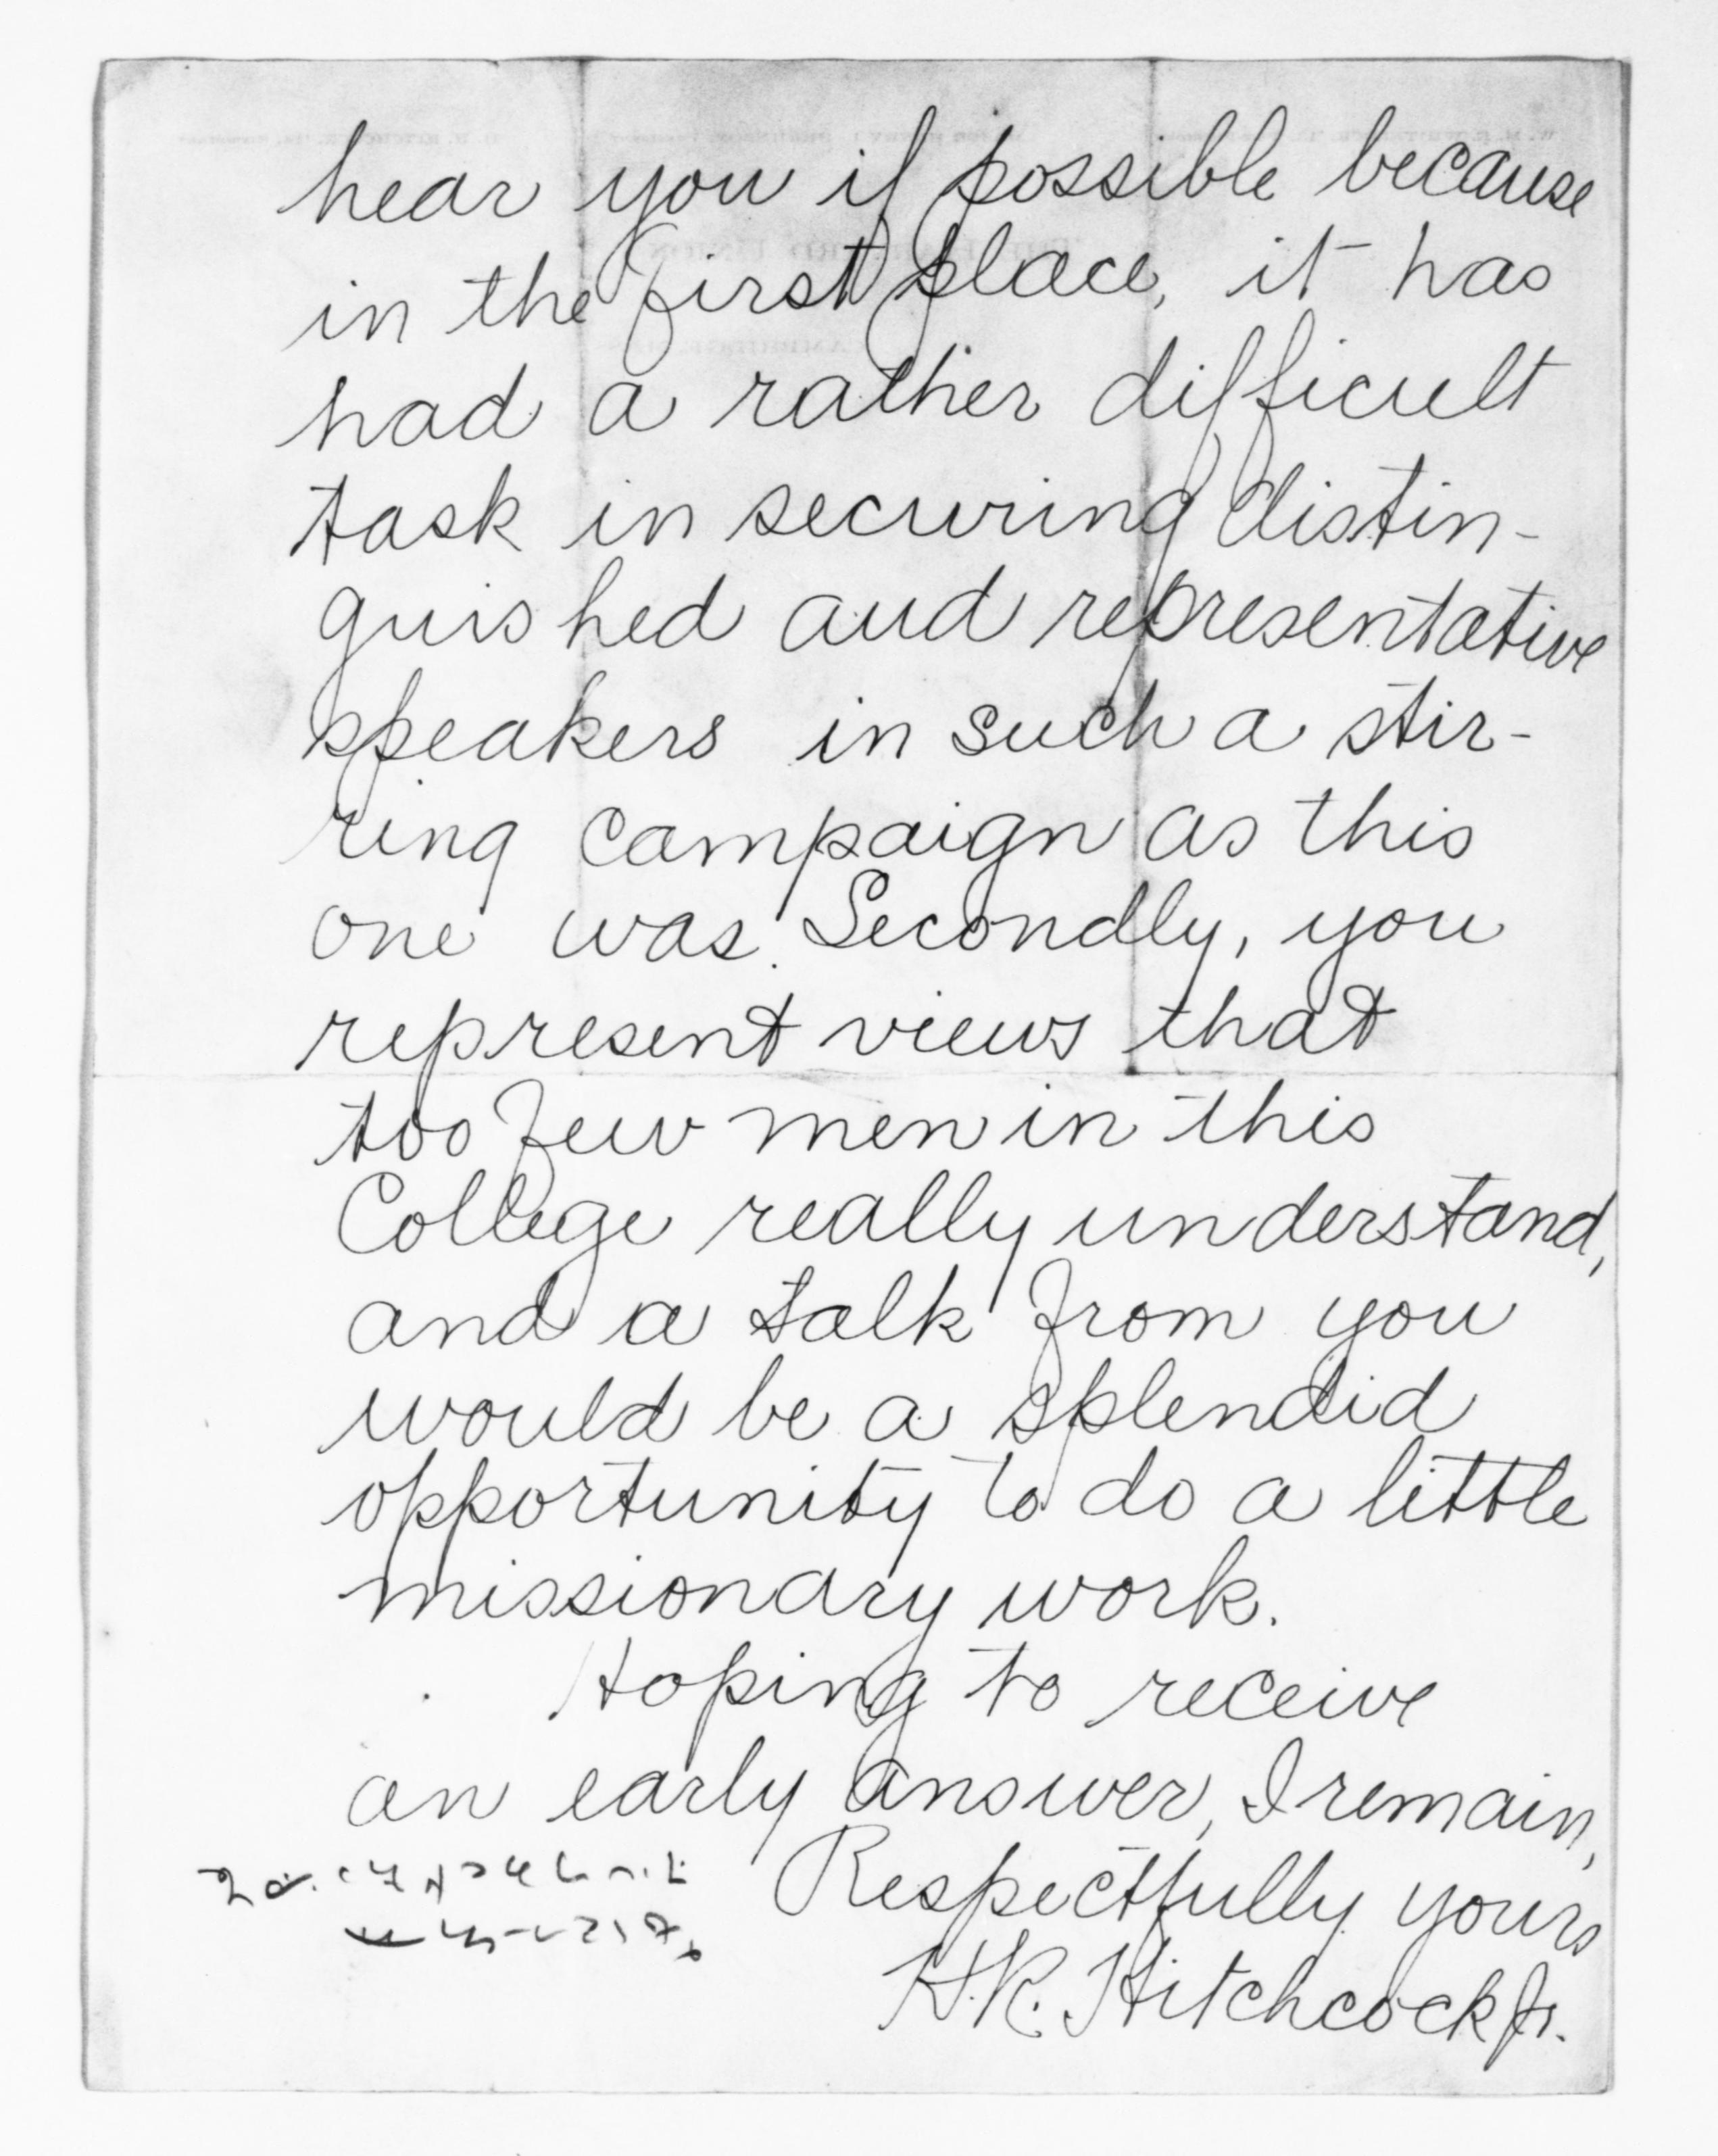 hear you if possible because
in the first place, it has
had a rather difficult
task in securing distin-
guished and representative
speakers in such a stir-
ring campaign as this
one was. Secondly, you
represent views that
too few men in this
College really understand,
and a talk from you
would be a splendid
opportunity to do a little
missionary work.
Hoping to receive
an early answer, I remain,
Respectfully yours
H.R. Hitchcock Jr.